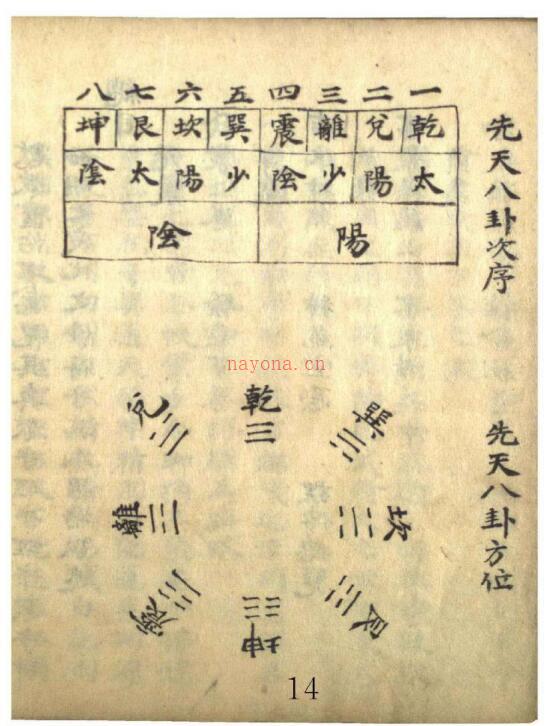 先天八卦次序
一 二 三 四 五 六 七 八
乾 兌 離 震 巽 坎 艮 坤
太 陽 少 陰 少 陽 太 陰
陽 陰
先天八卦方位
乾
兌
離
震
巽
坎
艮
坤
nayona.cn
14